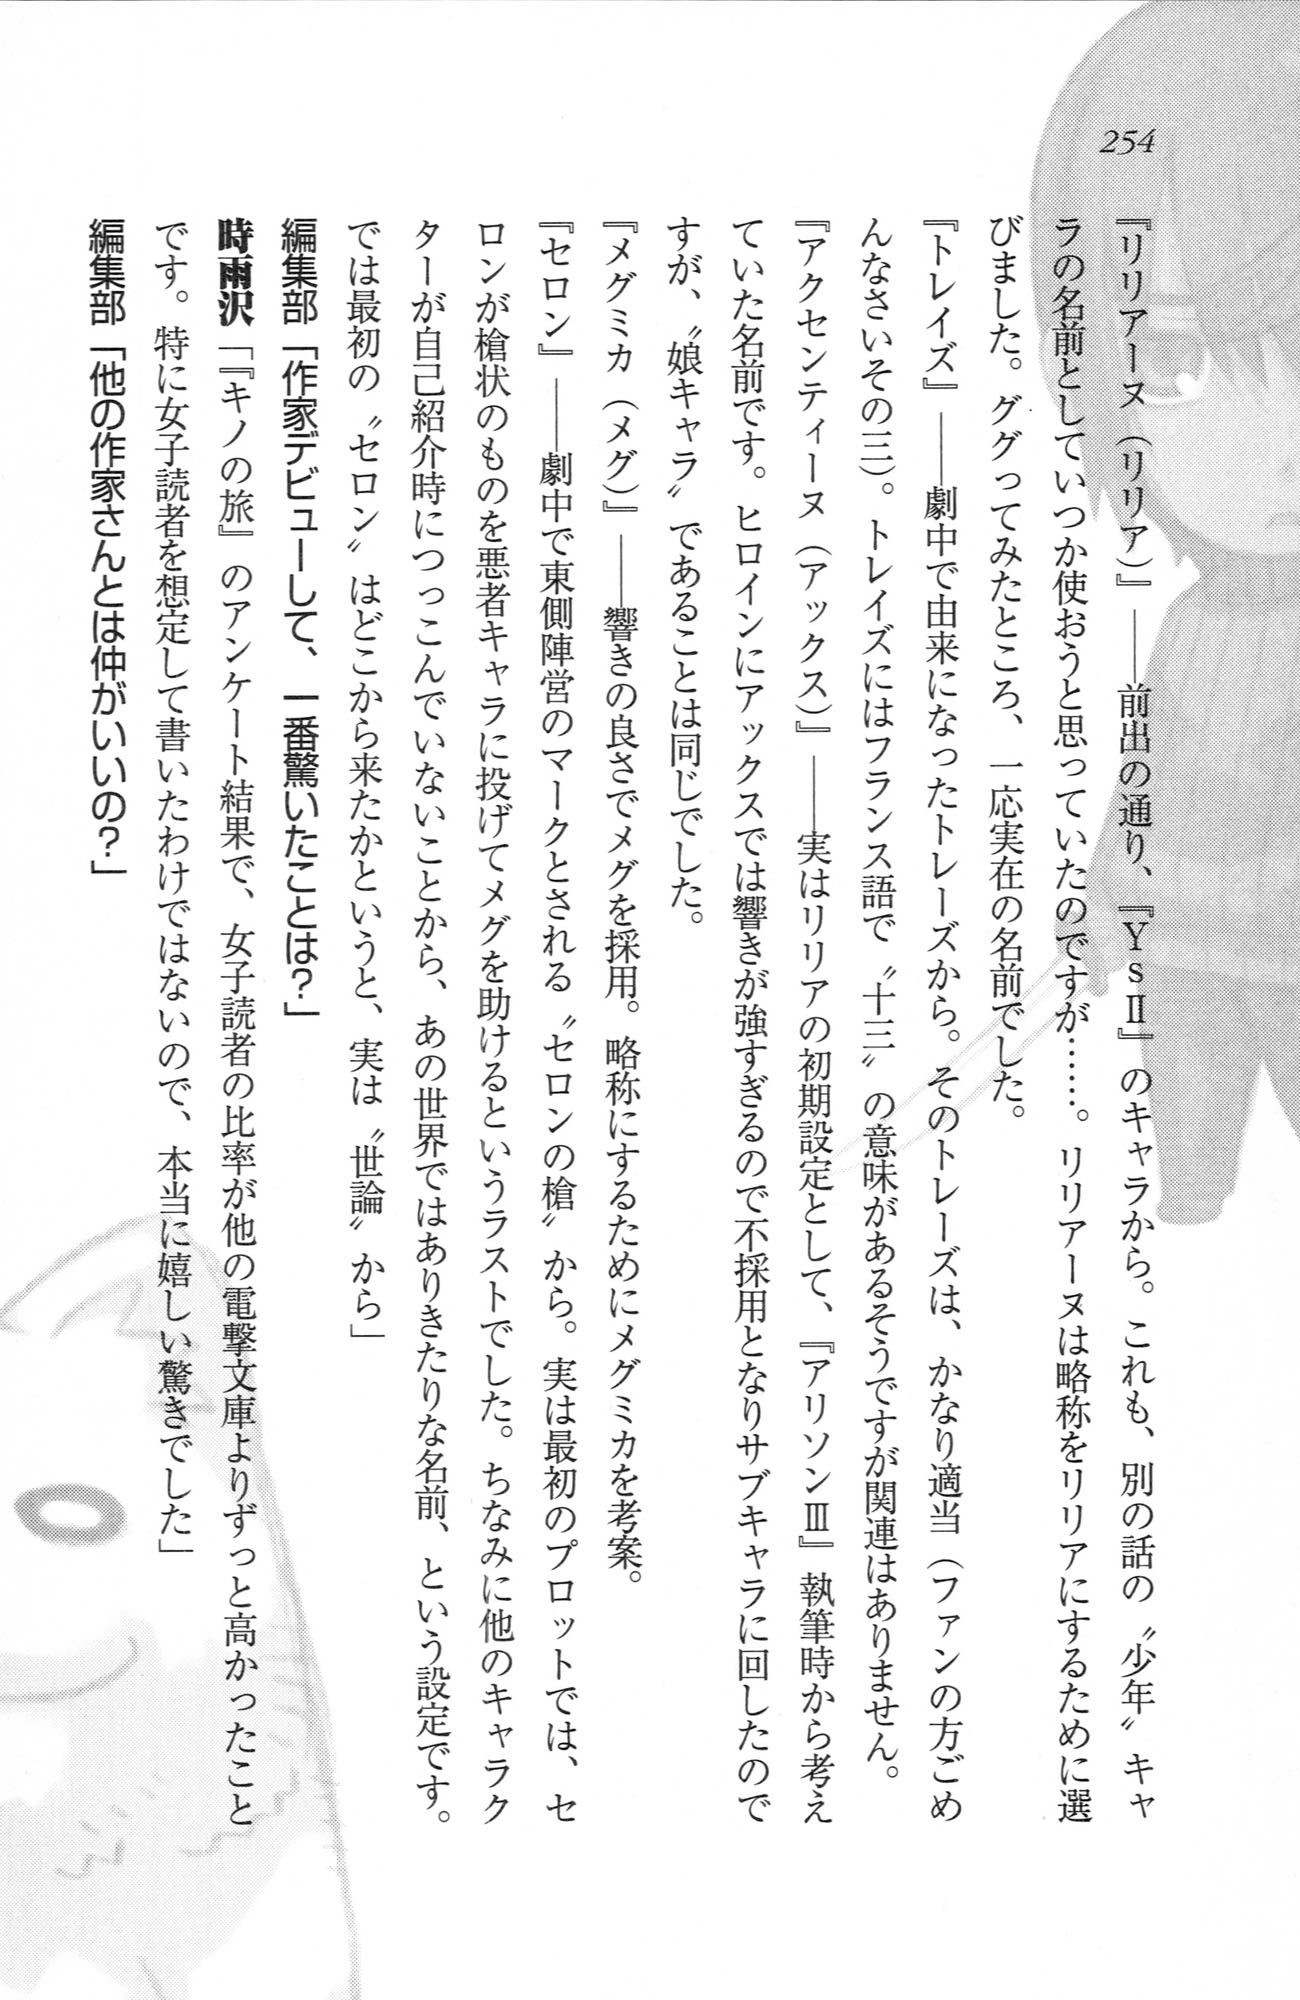 254
『リリアーヌ（リリア）』――前出の通り、『YsⅡ』のキャラから。これも、別の話の〝少年〟キャ
ラの名前としていつか使おうと思っていたのですが……。リリアーヌは略称をリリアにするために選
びました。ググってみたところ、一応実在の名前でした。
『トレイズ』――劇中で由来になったトレーズから。そのトレーズは、かなり適当（ファンの方ごめ
んなさいその三）。トレイズにはフランス語で〝十三〟の意味があるそうですが関連はありません。
『アクセンティーヌ（アックス）』――実はリリアの初期設定として、『アリソンⅢ』執筆時から考え
ていた名前です。ヒロインにアックスでは響きが強すぎるので不採用となりサブキャラに回したので
すが、〝娘キャラ〟であることは同じでした。
『メグミカ（メグ）』――響きの良さでメグを採用。略称にするためにメグミカを考案。
『セロン』――劇中で東側陣営のマークとされる〝セロンの槍〟から。実は最初のプロットでは、セ
ロンが槍状のものを悪者キャラに投げてメグを助けるというラストでした。ちなみに他のキャラク
ターが自己紹介時につっこんでいないことから、あの世界ではありきたりな名前、という設定です。
では最初の〝セロン〟はどこから来たかというと、実は〝世論〟から」
編集部「作家デビューして、一番驚いたことは？」
時雨沢「『キノの旅』のアンケート結果で、女子読者の比率が他の電撃文庫よりずっと高かったこと
です。特に女子読者を想定して書いたわけではないので、本当に嬉しい驚きでした」
編集部「他の作家さんとは仲がいいの？」